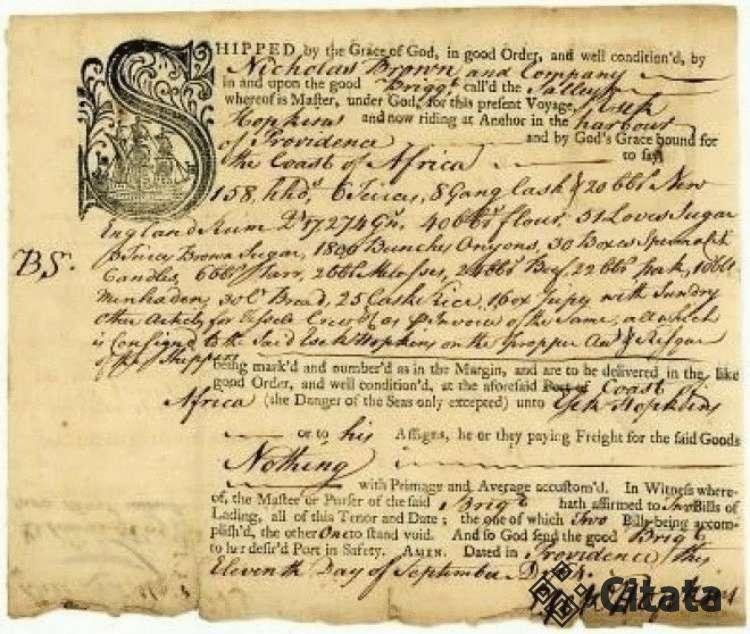 SHIPPED by the Grace of God, in good Order, and well condition'd, by
Nicholas Brown and Company
in and upon the good Brigg call'd the Sally
whereof is Master, under God, for this present Voyage, Esek
Hopkins and now riding at Anchor in the harbour
of Providence and by God's Grace bound for
the Coast of Africa to say
158 hhds 6 Teirces, 8 Gang Cask & 20 bbls New
England Rum 17274 Gs. 40 bbs flour, 51 Loves Sugar
Teircy Brown Sugar, 1800 Bunches Onyons, 30 Boxes
Candles, 6 bbls Tarr, 2 bbl Melosses, 24 bbs Beef, 22 bbs pork, 10 bbls
Menhaden, 30 C Bread, 25 Casks Rice, 16 with Sundry
Other for as Invoice of the Same, all which
is Consign'd to the Said Esek Hopkins on the propper &
of the Shippers
BS.
being mark'd and number'd as in the Margin, and are to be delivered in the like
good Order, and well condition'd, at the aforesaid Port of Coast of
Africa (the Danger of the Seas only excepted) unto Esek Hopkins
or to his Assigns, he or they paying Freight for the said Goods
Nothing
with Primage and Average accustom'd. In Witness where-
of, the Master or Purser of the said Brigt hath affirmed to Two Bills of
Lading, all of this Tenor and Date; the one of which Two Bills being accom-
plish'd, the other One to stand void. And so God send the good Brigt
to her desir'd Port in Safety. AMEN. Dated in Providence this
Eleventh Day of September
Hopkins
Citata